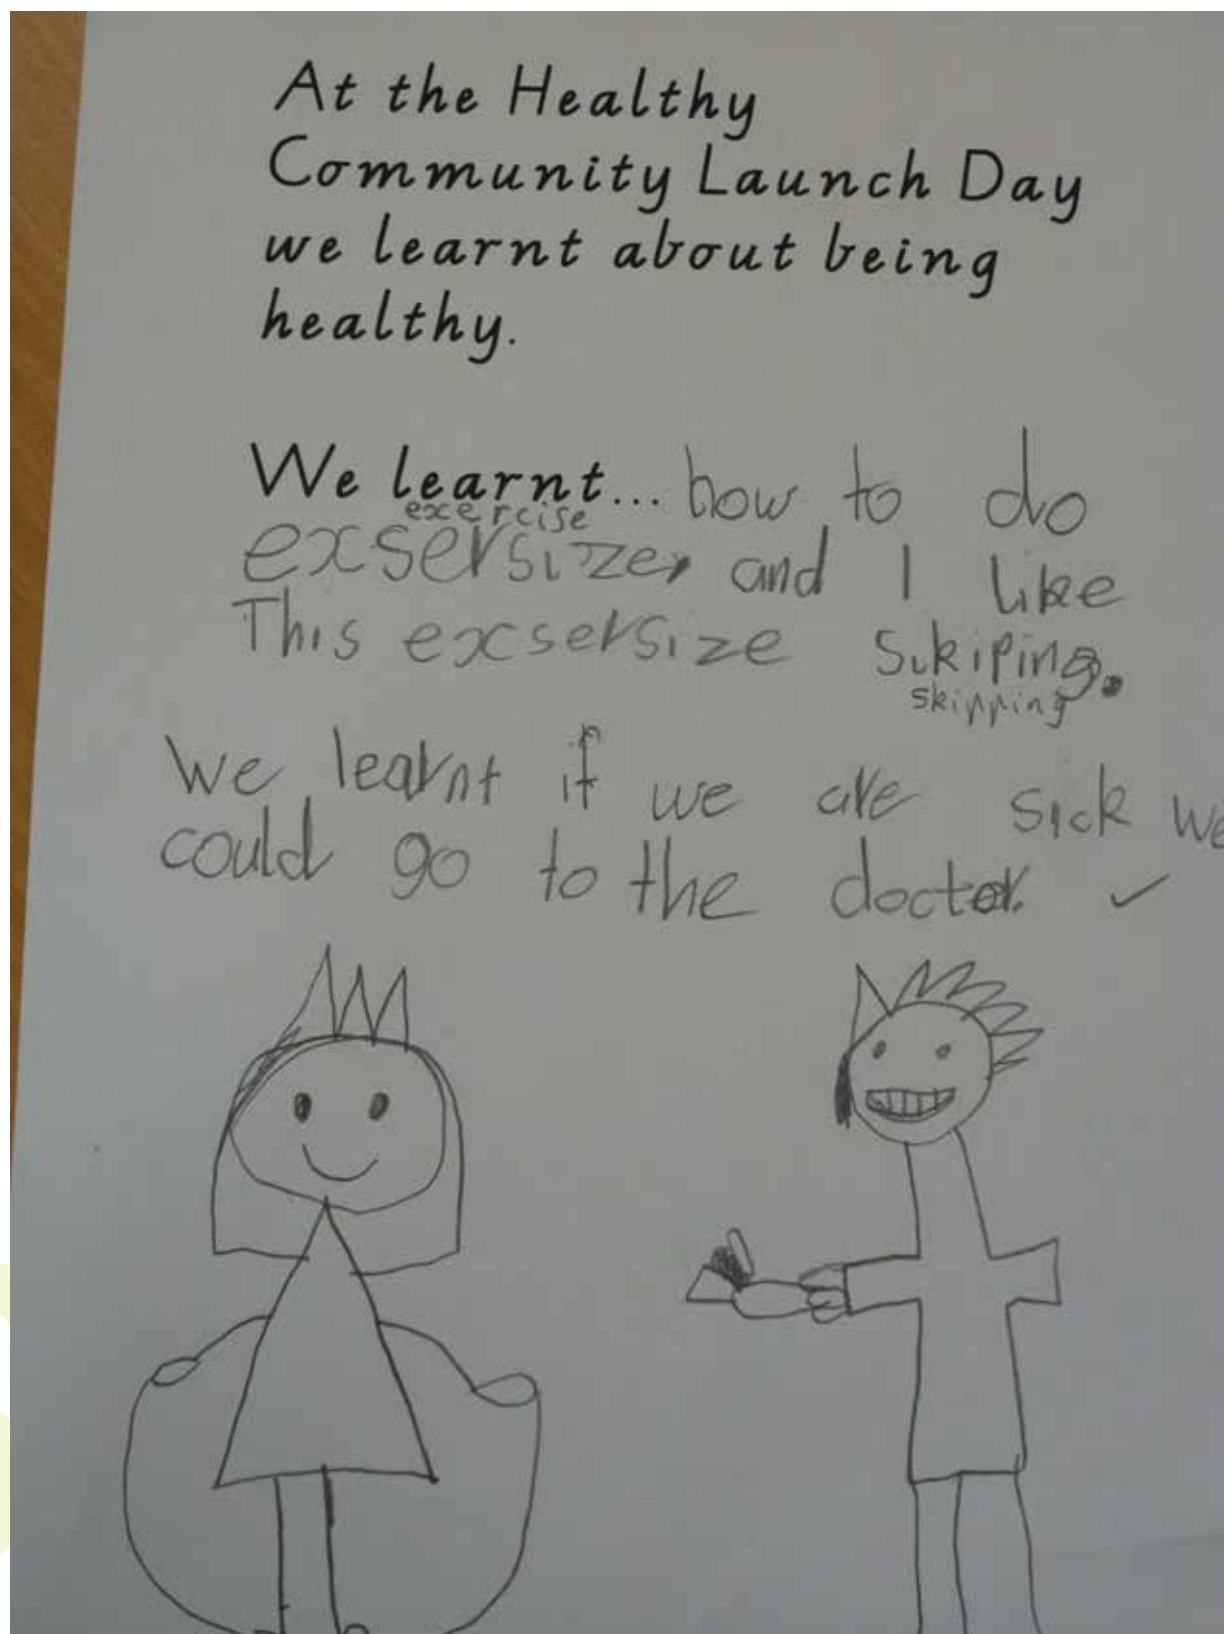 At the Healthy
Community Launch Day
we learnt about being
healthy.
We learnt... how to do
exercise
exsersize, and I like
This exsersize Sikiping.
skipping
We learnt if we are sick we
could go to the doctor. ✓